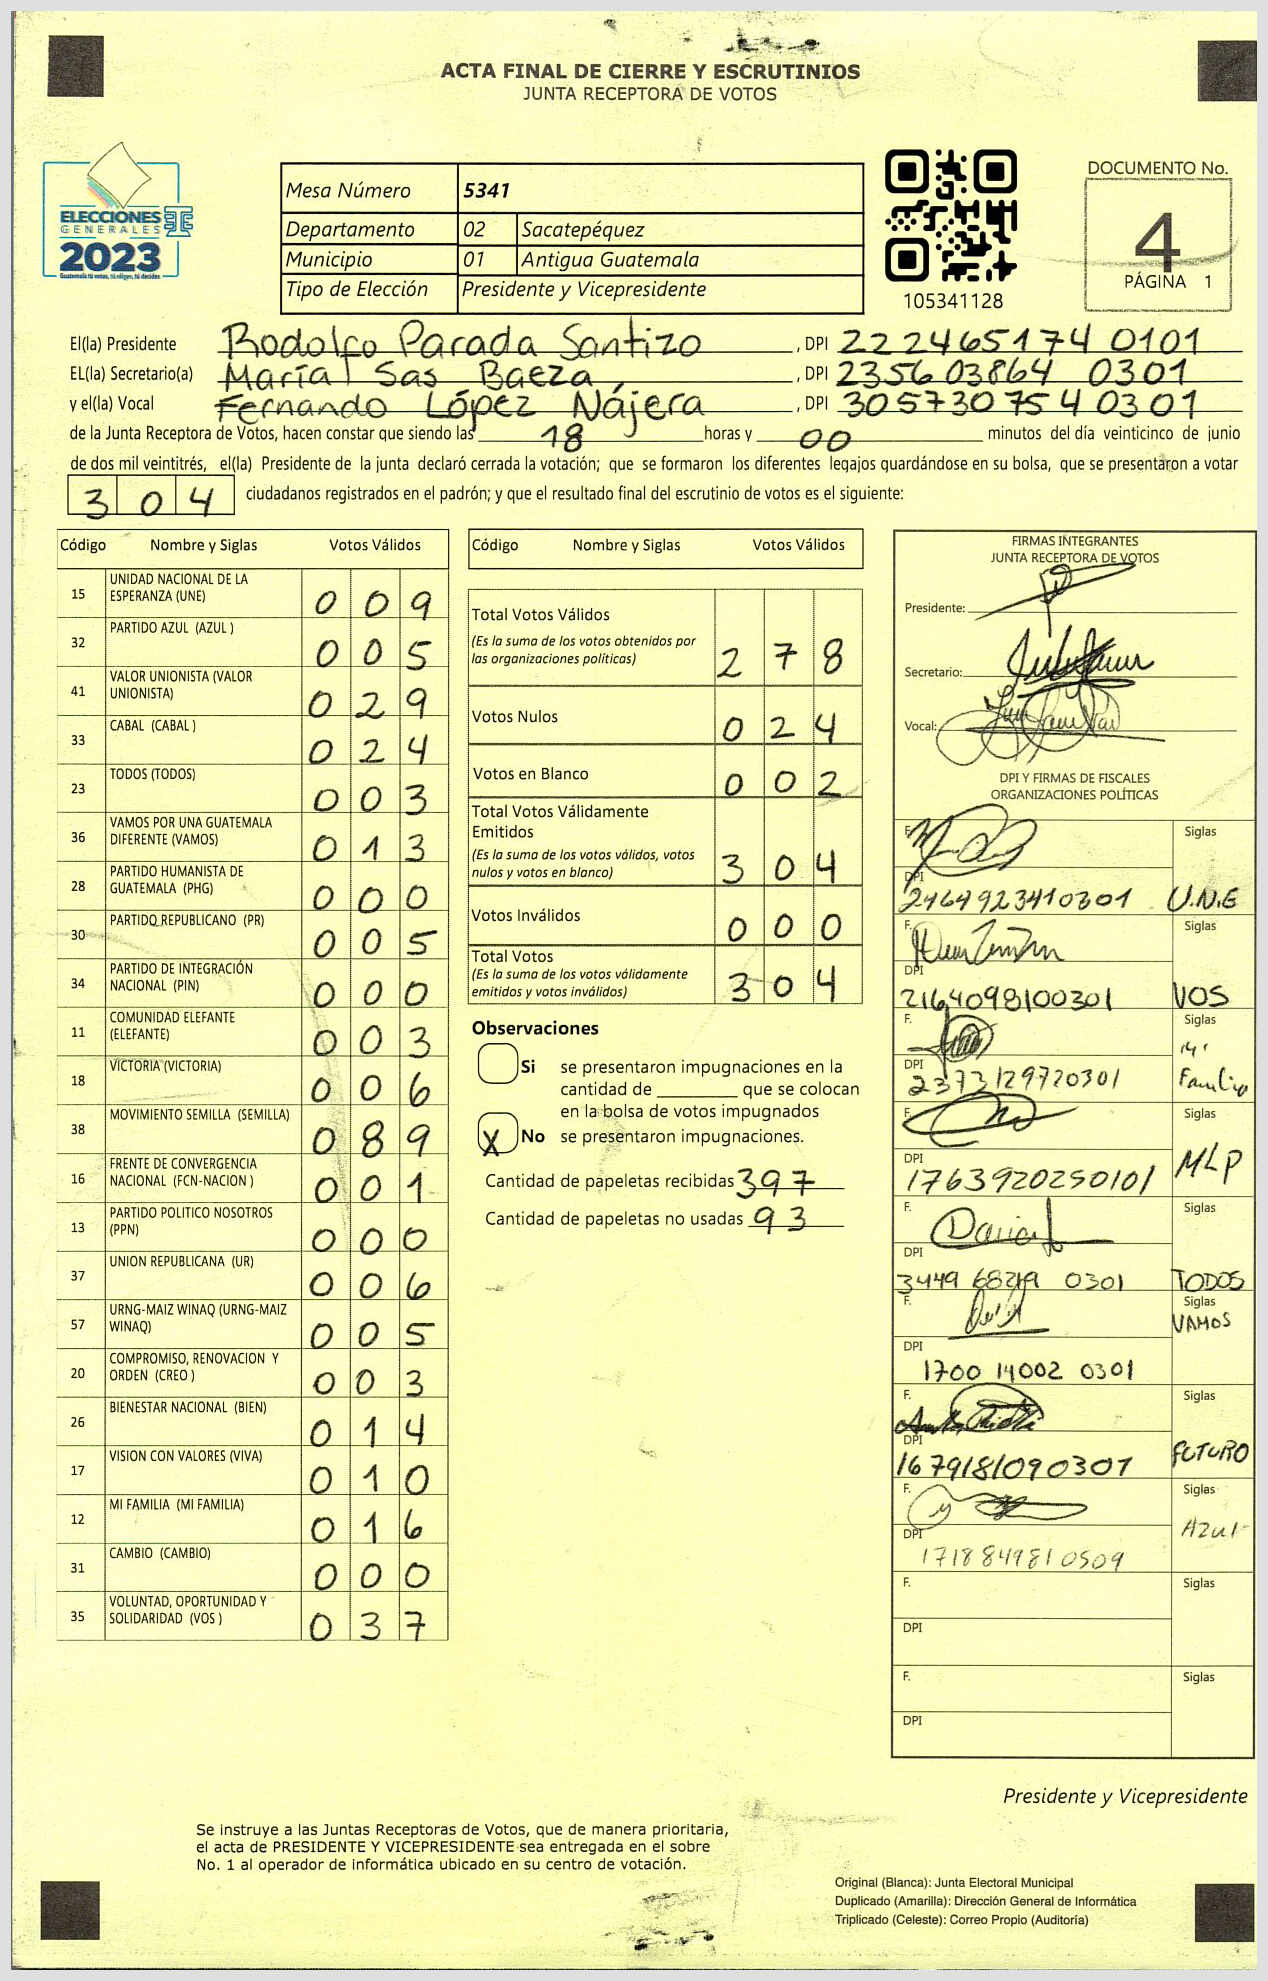 ACTA FINAL DE CIERRE Y ESCRUTINIOS
JUNTA RECEPTORA DE VOTOS
ELECCIONES
GENERALES
2023
Guatemala tú votas, tú eliges, tú decides
Mesa Número 5341
Departamento 02 Sacatepéquez
Municipio 01 Antigua Guatemala
Tipo de Elección Presidente y Vicepresidente
105341128
DOCUMENTO No.
4
PÁGINA 1
El(la) Presidente Rodolfo Parada Santizo , DPI 222465174 0101
EL(la) Secretario(a) María Sas Baeza , DPI 235603864 0301
y el(la) Vocal Fernando López Nájera , DPI 305730754 0301
de la Junta Receptora de Votos, hacen constar que siendo las 18 horas y 00 minutos del día veinticinco de junio
de dos mil veintitrés, el(la) Presidente de la junta declaró cerrada la votación; que se formaron los diferentes legajos guardándose en su bolsa, que se presentaron a votar
304 ciudadanos registrados en el padrón; y que el resultado final del escrutinio de votos es el siguiente:
Código Nombre y Siglas Votos Válidos
15 UNIDAD NACIONAL DE LA
ESPERANZA (UNE) 009
32 PARTIDO AZUL (AZUL ) 005
41 VALOR UNIONISTA (VALOR
UNIONISTA) 029
33 CABAL (CABAL ) 024
23 TODOS (TODOS) 003
36 VAMOS POR UNA GUATEMALA
DIFERENTE (VAMOS) 013
28 PARTIDO HUMANISTA DE
GUATEMALA (PHG) 000
30 PARTIDO REPUBLICANO (PR) 005
34 PARTIDO DE INTEGRACIÓN
NACIONAL (PIN) 000
11 COMUNIDAD ELEFANTE
(ELEFANTE) 003
18 VICTORIA (VICTORIA) 006
38 MOVIMIENTO SEMILLA (SEMILLA) 089
16 FRENTE DE CONVERGENCIA
NACIONAL (FCN-NACION ) 001
13 PARTIDO POLITICO NOSOTROS
(PPN) 000
37 UNION REPUBLICANA (UR) 006
57 URNG-MAIZ WINAQ (URNG-MAIZ
WINAQ) 005
20 COMPROMISO, RENOVACION Y
ORDEN (CREO ) 003
26 BIENESTAR NACIONAL (BIEN) 014
17 VISION CON VALORES (VIVA) 010
12 MI FAMILIA (MI FAMILIA) 016
31 CAMBIO (CAMBIO) 000
35 VOLUNTAD, OPORTUNIDAD Y
SOLIDARIDAD (VOS ) 037
Código Nombre y Siglas Votos Válidos
Total Votos Válidos
(Es la suma de los votos obtenidos por
las organizaciones políticas) 278
Votos Nulos 024
Votos en Blanco 002
Total Votos Válidamente
Emitidos
(Es la suma de los votos válidos, votos
nulos y votos en blanco) 304
Votos Inválidos 000
Total Votos
(Es la suma de los votos válidamente
emitidos y votos inválidos) 304
Observaciones
Si se presentaron impugnaciones en la
cantidad de ________ que se colocan
en la bolsa de votos impugnados
X No se presentaron impugnaciones.
Cantidad de papeletas recibidas 397
Cantidad de papeletas no usadas 93
FIRMAS INTEGRANTES
JUNTA RECEPTORA DE VOTOS
Presidente:
Secretario:
Vocal:
DPI Y FIRMAS DE FISCALES
ORGANIZACIONES POLÍTICAS
F. Siglas
DPI
2464923410301 U.N.E
F. Siglas
DPI
2164098100301 VOS
F. Siglas
DPI
2373129720301 Familia
F. Siglas
DPI
1763920250101 MLP
F. Siglas
DPI
3449 68219 0301 TODOS
F. Siglas
VAMOS
DPI
1700 14002 0301
F. Siglas
DPI
1679181090301 FUTURO
F. Siglas
Azul
DPI
1718849810509
F. Siglas
DPI
F. Siglas
DPI
Presidente y Vicepresidente
Se instruye a las Juntas Receptoras de Votos, que de manera prioritaria,
el acta de PRESIDENTE Y VICEPRESIDENTE sea entregada en el sobre
No. 1 al operador de informática ubicado en su centro de votación.
Original (Blanca): Junta Electoral Municipal
Duplicado (Amarilla): Dirección General de Informática
Triplicado (Celeste): Correo Propio (Auditoría)